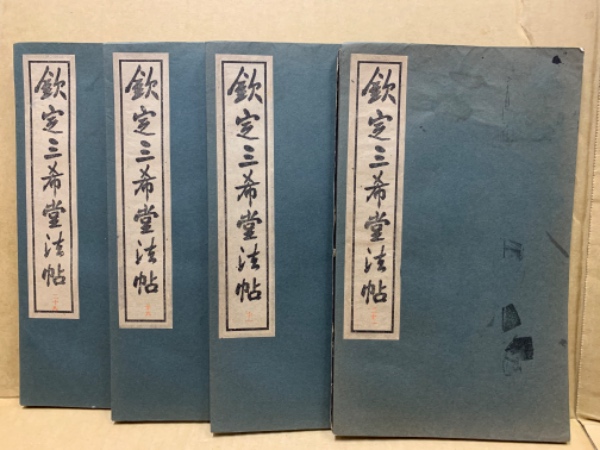 欽定三希堂法帖
欽定三希堂法帖
欽定三希堂法帖
欽定三希堂法帖